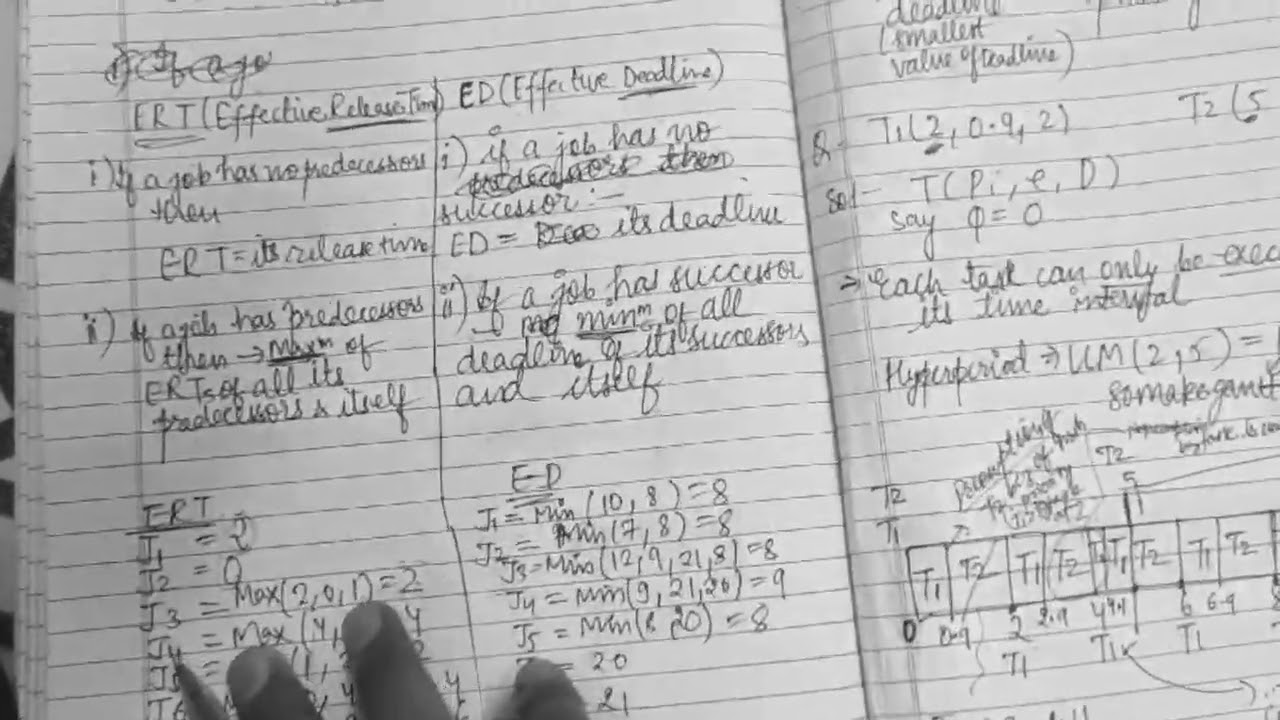 ERT (Effective Release Time)
i) If a job has no predecessors
then
ERT = its release time
ii) If a job has predecessors
then → Maxm of
ERTs of all its
predecessors & itself
ERT
J1 = 2
J2 = 0
J3 = Max(2,0,1) = 2
J4 = Max (4,
ED (Effective Deadline)
i) if a job has no
successor :-
ED = its deadline
ii) If a job has successor
minm of all
deadline of its successors
and itself
ED
J1 = Min (10, 8) = 8
J2 = Min(7, 8) = 8
J3 = Min(12, 9, 21, 8) = 8
J4 = Min(9, 21, 20) = 9
J5 = Min(8 20) = 8
= 20
21
deadline
(smallest
value of deadline)
Q- T1(2, 0.9, 2) T2 (5
Sol- T(Pi, e, D)
say φ = 0
→ Each task can only be exec
its time interval
Hyperperiod ⇒ LCM(2,5) =
so make gantt
T2 5
T2
T1
T1 T2 T1 T2 T1 T2 T1 T2
0 0.9 2 2.9 4 6 6.9 8
T1 T1 T1